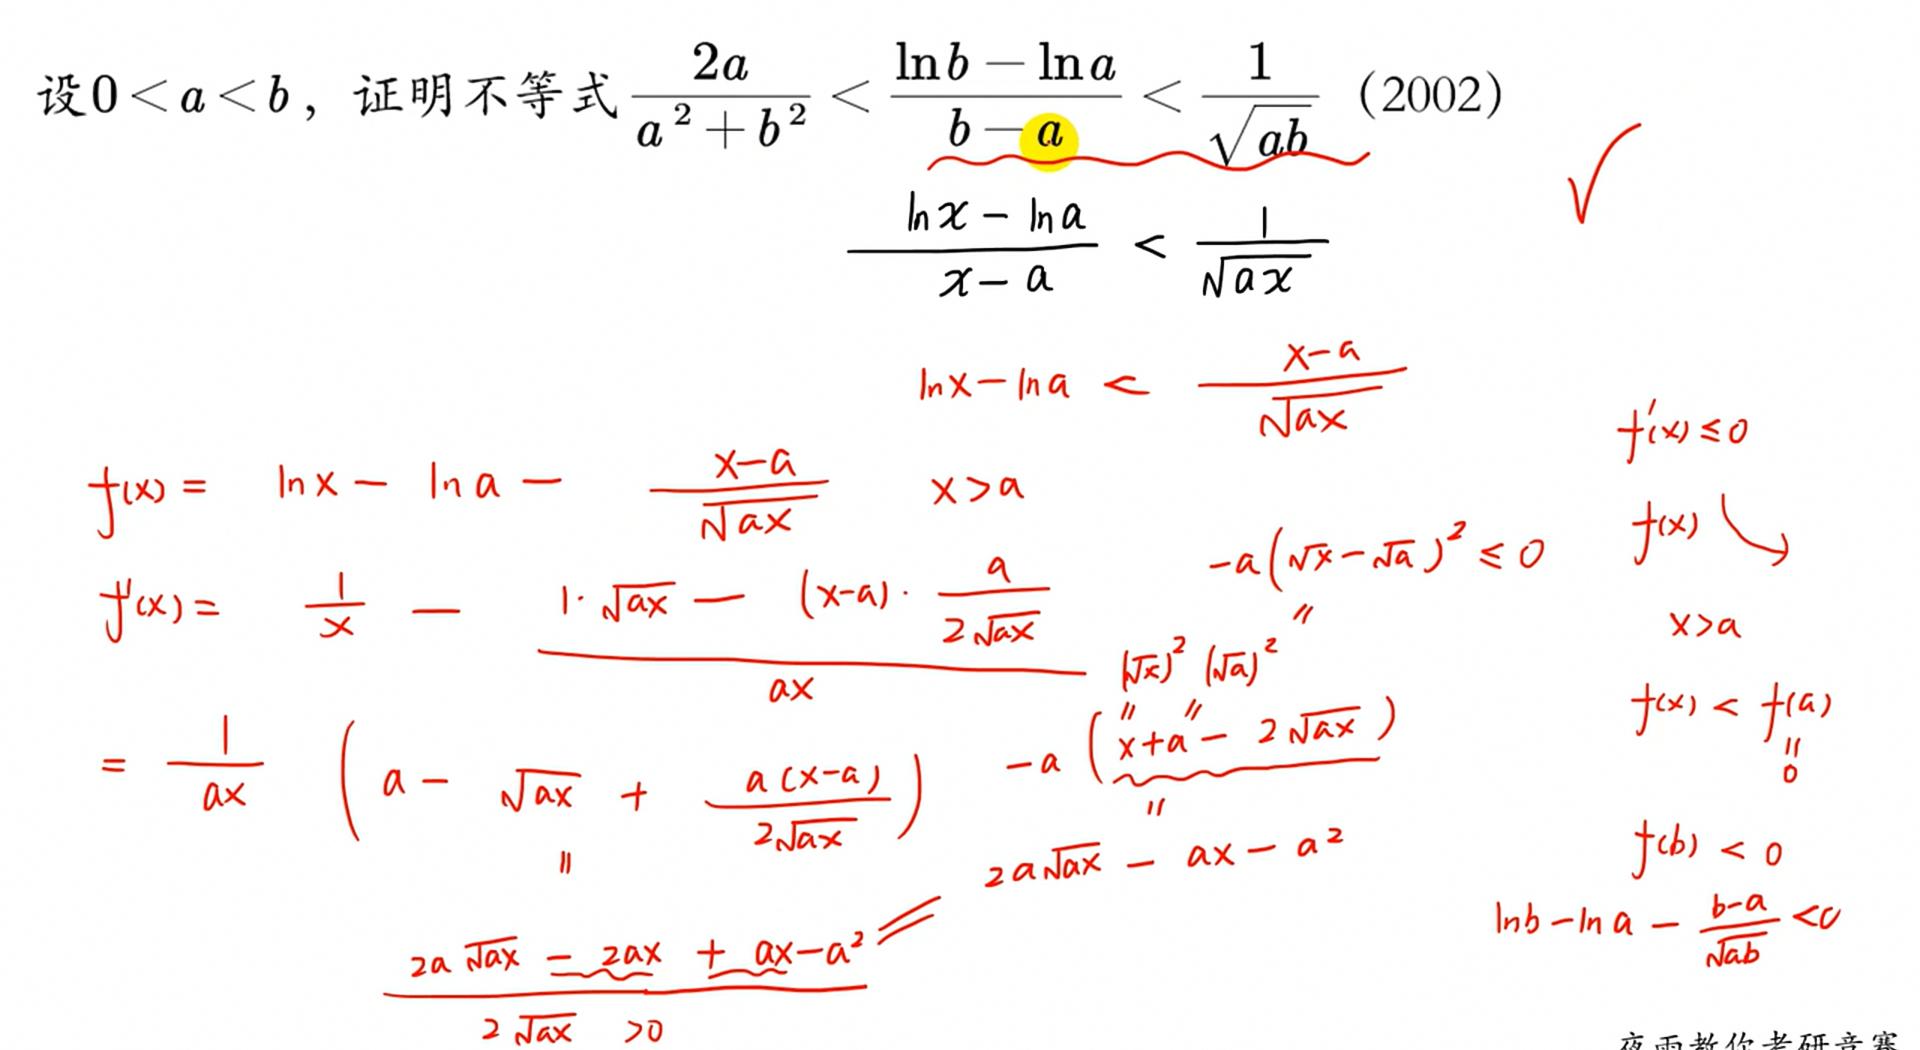 设0<a<b，证明不等式 2a/(a²+b²) < (lnb−lna)/(b−a) < 1/√(ab) (2002)
(lnx − lna)/(x−a) < 1/√(ax)
lnx−lna < (x−a)/√(ax)
f(x)= lnx − lna − (x−a)/√(ax) x>a
f'(x)= 1/x − (1·√(ax) − (x−a)·a/(2√(ax)))/(ax)
= 1/(ax) (a − √(ax) + a(x−a)/(2√(ax)))
〃
(2a√(ax) − 2ax + ax−a²)/(2√(ax) >0)
=
2a√(ax) − ax − a²
〃
−a(x+a − 2√(ax))
〃 〃
(√x)² (√a)²
〃
−a(√x−√a)² ≤ 0
f'(x)≤0
f(x) ↘
x>a
f(x) < f(a)
〃
0
f(b) < 0
lnb−lna − (b−a)/√(ab) <0